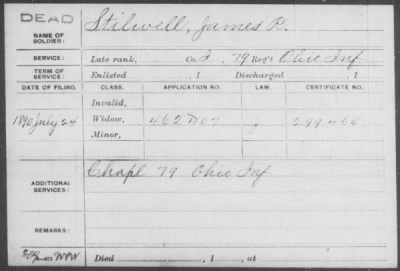 DEAD
NAME OF SOLDIER: Stilwell, James R.
SERVICE: Late rank, Co. 79 Reg't Ohio Inf
TERM OF SERVICE: Enlisted , 1 Discharged , 1
DATE OF FILING. CLASS. APPLICATION NO. LAW. CERTIFICATE NO.
Invalid,
1890 July 24 Widow, 299
Minor,
ADDITIONAL SERVICES: Chapl 79 Ohio Inf
REMARKS:
Died , 1 , at